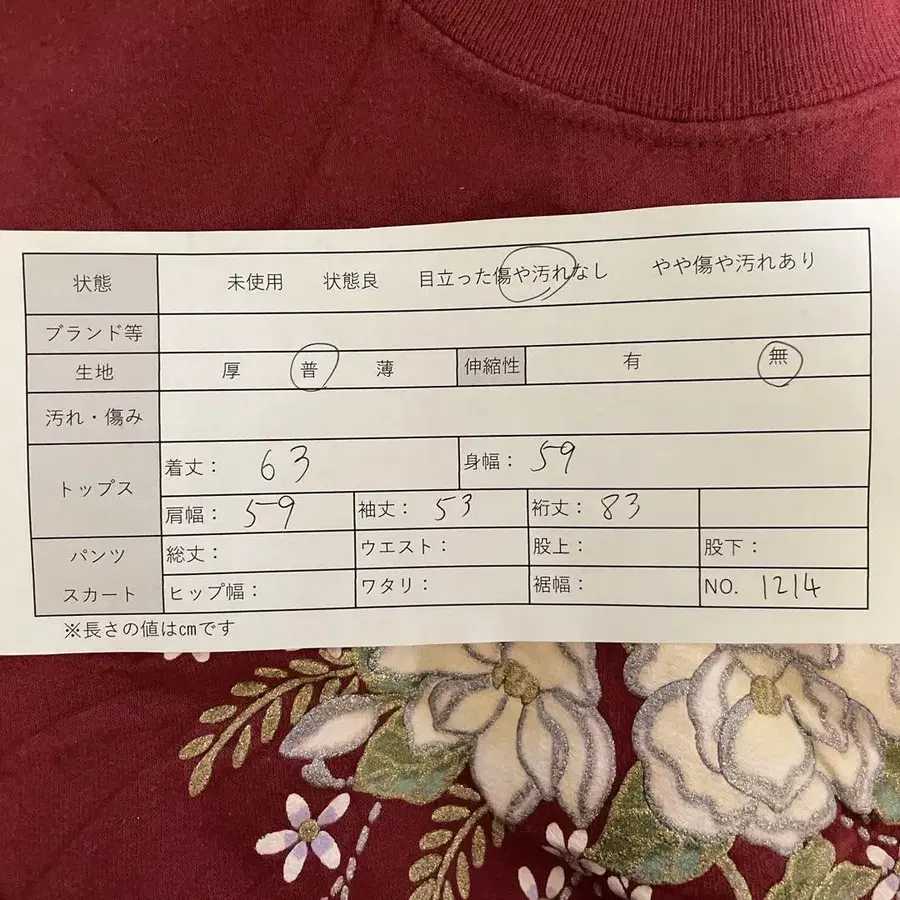 状態 未使用 状態良 目立った傷や汚れなし やや傷や汚れあり
ブランド等
生地 厚 普 薄 伸縮性 有 無
汚れ・傷み
トップス 着丈： 63 身幅： 59
肩幅： 59 袖丈： 53 裄丈： 83
パンツ 総丈： ウエスト： 股上： 股下：
スカート ヒップ幅： ワタリ： 裾幅： NO. 1214
※長さの値は㎝です